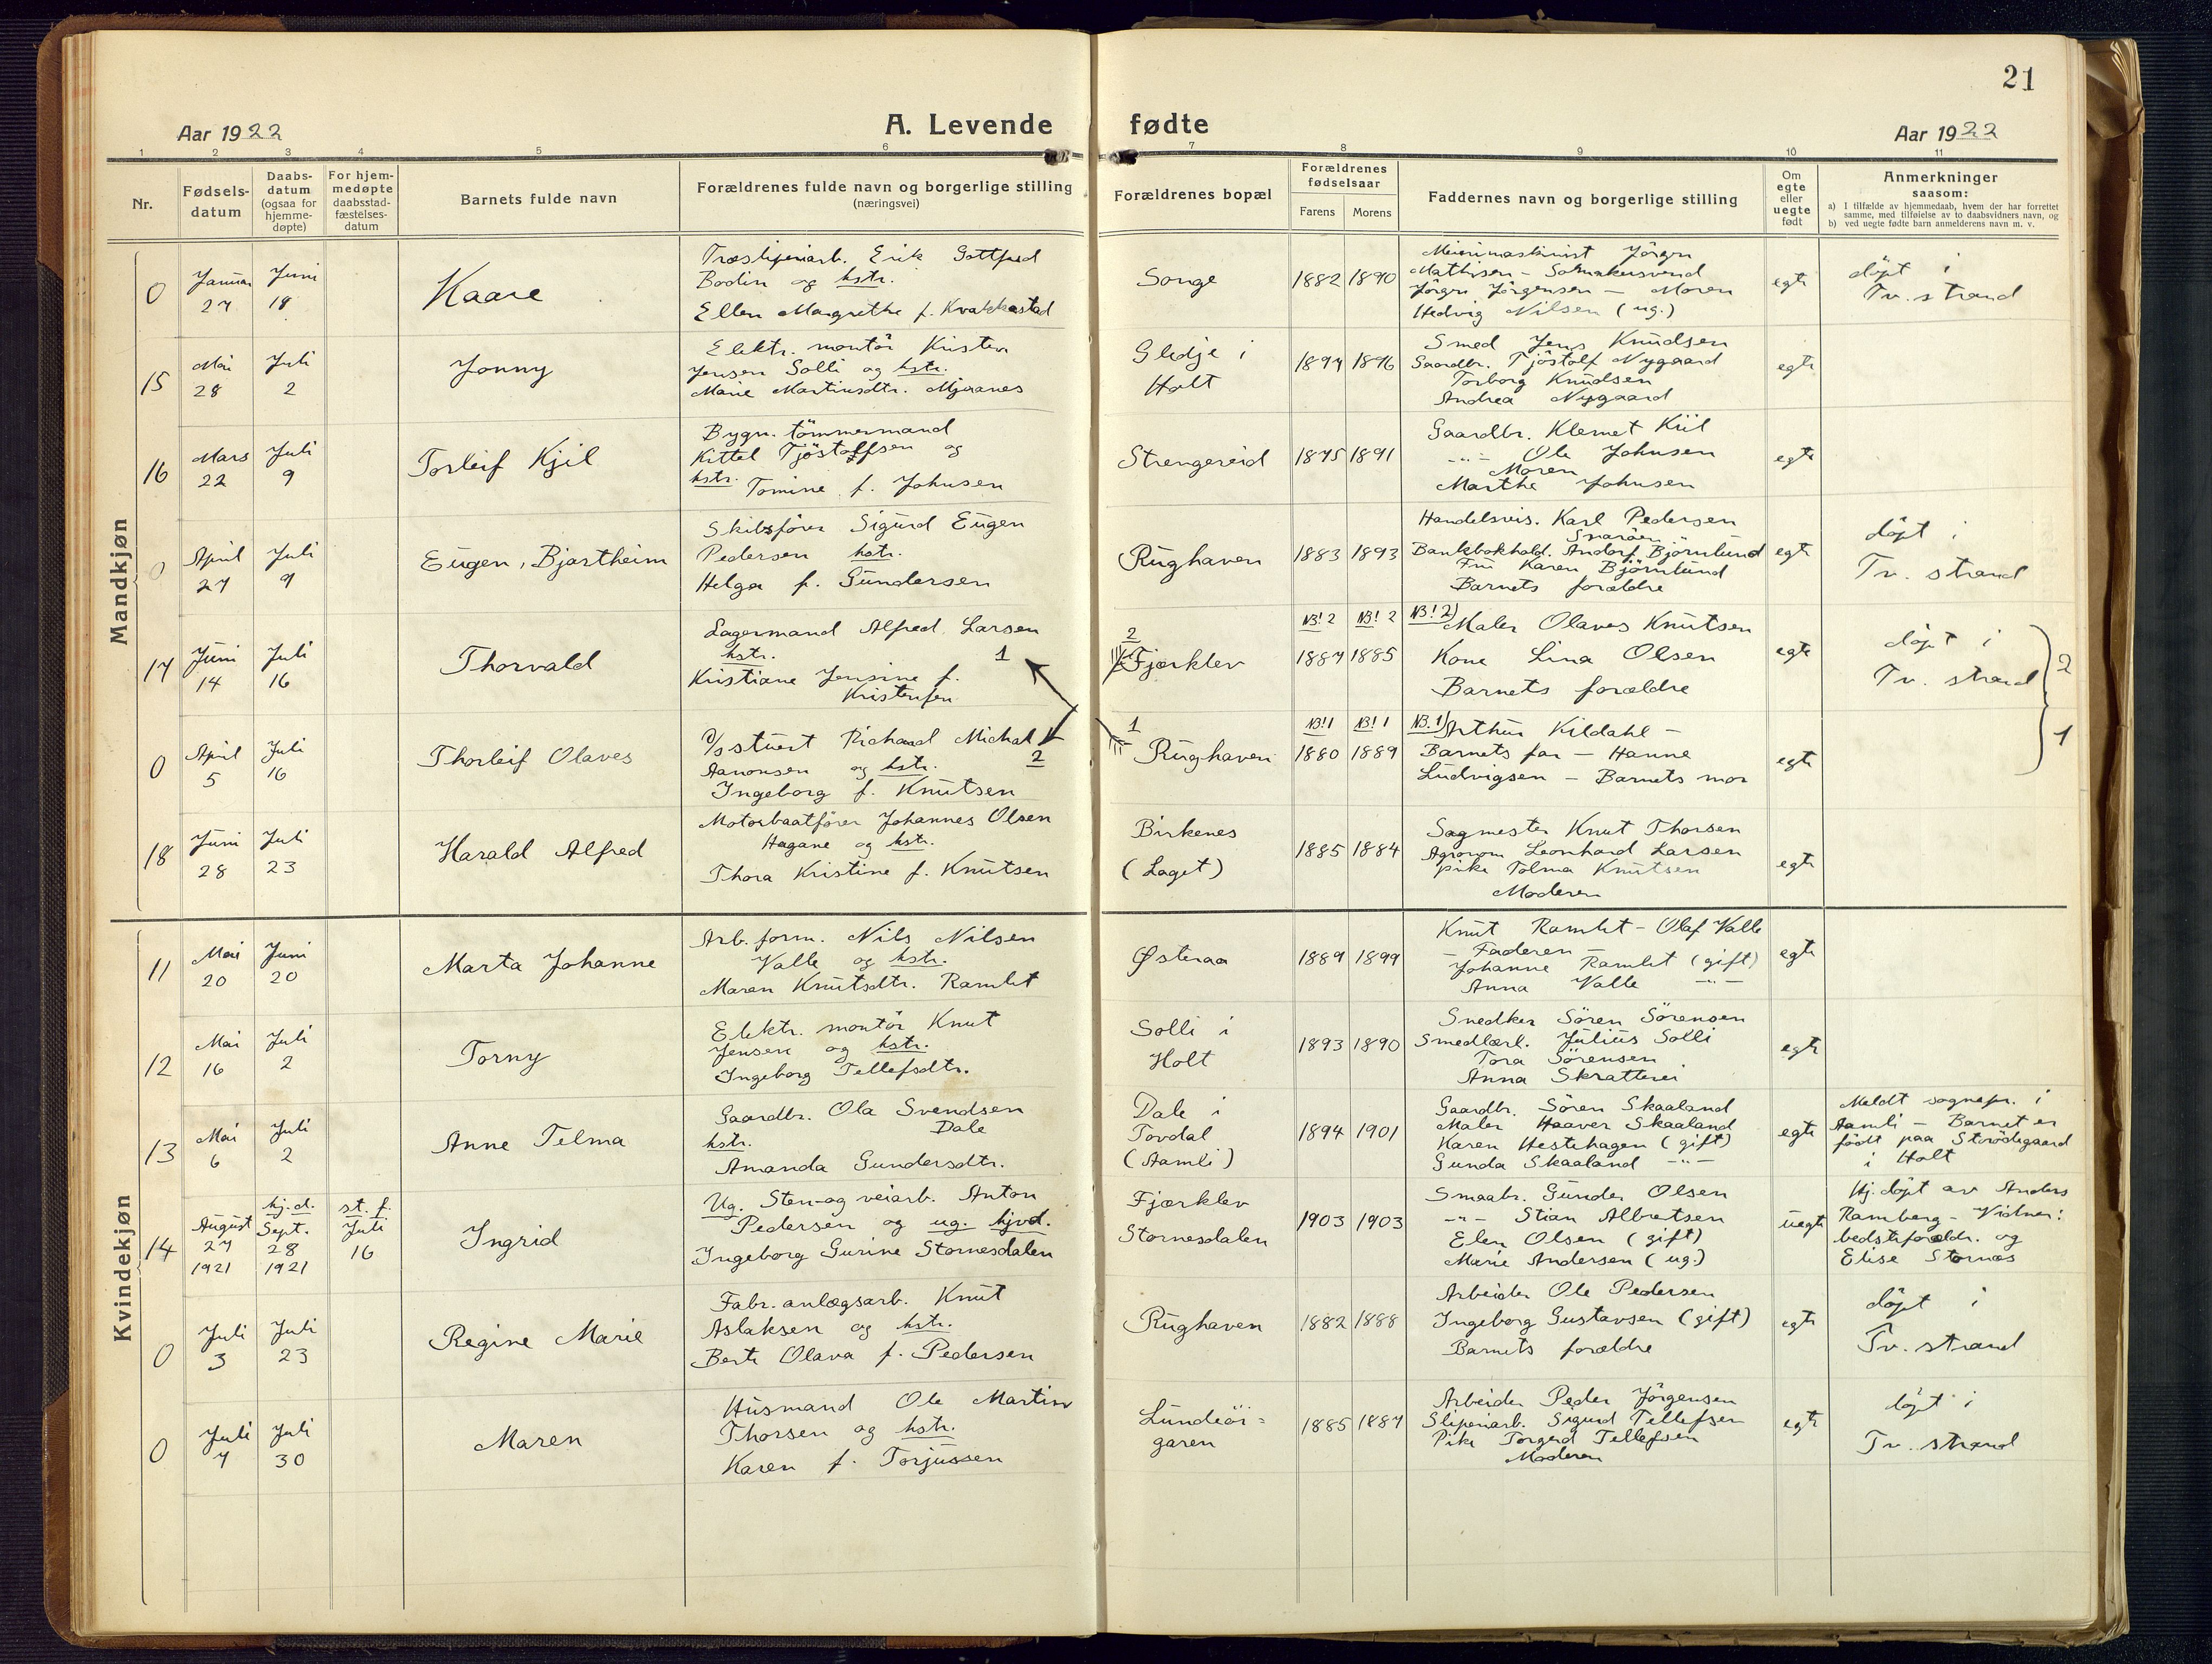 21
Aar 1922
A. Levende fødte
Aar 1922
1 2 3 4 5 6 7 8 9 10 11
Nr.
Fødsels-
datum
Daabs-
datum
(ogsaa for
hjemme-
døpte)
For hjem-
medøpte
daabsstad-
fæstelses-
datum
Barnets fulde navn
Forældrenes fulde navn og borgerlige stilling
(næringsvei)
Forældrenes bopæl
Forældrenes
fødselsaar
Farens Morens
Faddernes navn og borgerlige stilling
Om
egte
eller
uegte
født
Anmerkninger
saasom:
a) I tilfælde av hjemmedaab, hvem der har forrettet
samme, med tilføielse av to daabsvidners navn, og
b) ved uegte fødte barn anmelderens navn m. v.
Mandkjøn
0
Januar
27
Juni
18
Kaare
Træsliperiarb. Erik Gottfred
Bodin og hstr.
Ellen Margrethe f. Kvakkestad
Songe
1882 1890
Jörgen
Mathisen –
Jörgen Jörgensen – Moren
Hedvig Nilsen (ug.)
egte
döpt i
Tv. strand
15
Mai
28
Juli
2
Jonny
Elektr. montör Kristen
Jensen Solli og hstr.
Marie Martinsdtr. Mjaanes
Gledje i
Holt
1894 1896
Smed Jens Knudsen
Gaardbr. Tjöstolf Nygaard
Torborg Knudsen
Andrea Nygaard
egte
16
Mars
22
Juli
9
Torleif Kjil
Bygn. tömmermand
Kittel Tjöstolfsen og
hstr. Tomine f. Johnsen
Strengereid
1875 1891
Gaardbr. Klemet Kiil
–"– Ole Johnsen
Moren
Marthe Johnsen
egte
0
April
27
Juli
9
Eugen, Bjartheim
Skibsförer Sigurd Eugen
Pedersen hstr.
Helga f. Gundersen
Rughaven
1883 1893
Handelsreis. Karl Pedersen
Snaröen
Bankbokhold. Andorf Björnlund
Fru Karen Björnlund
Barnets forældre
egte
döpt i
Tv. strand
17
Juni
14
Juli
16
Thorvald
Lagermand Alfred Larsen
hstr. 1
Kristiane Jensine f.
Kristensen
2
Fjærklev
NB! 2 NB! 2 NB! 2)
1887 1885
Maler Olaves Knutsen
Kone Lina Olsen
Barnets forældre
egte
döpt i
Tv. strand
2
0
April
5
Juli
16
Thorleif Olaves
D/s stuert Richard Michal
Aanonsen og hstr. 2
Ingeborg f. Knutsen
1
Rughaven
NB! 1 NB! 1 NB. 1)
1880 1889
Arthur Kildahl –
Barnets far – Hanne
Ludvigsen – Barnets mor
egte
1
18
Juni
28
Juli
23
Harald Alfred
Motorbaatförer Johannes Olsen
Hagane og hstr.
Thora Kristine f. Knutsen
Birkenes
(Laget)
1885 1884
Sagmester Knut Thorsen
Agronom Leonhard Larsen
pike Tolma Knutsen
Moderen
egte
Kvindekjøn
11
Mai
20
Juni
20
Marta Johanne
Arb. form. Nils Nilsen
Valle og hstr.
Maren Knutsdtr. Ramlet
Østeraa
1889 1899
Knut Ramlet – Olaf Valle
– Faderen –
Johanne Ramlet (gift)
Anna Valle –"–
egte
12
Mai
16
Juli
2
Torny
Elektr. montör Knut
Jensen og hstr.
Ingeborg Tellefsdtr.
Solli i
Holt
1893 1890
Snedker Sören Sörensen
Smedlærl. Julius Solli
Tora Sörensen
Anna Skratterei
egte
13
Mai
6
Juli
2
Anne Telma
Gaardbr. Ola Svendsen
Dale
hstr.
Amanda Gundersdtr.
Dale i
Tovdal
(Aamli)
1894 1901
Gaardbr. Sören Skaaland
Maler Haaver Skaaland
Karen Hestehagen (gift)
Gunda Skaaland –"–
egte
Meldt sognepr. i
Aamli – Barnet er
födt paa Stordegaard
i Holt
14
August
27
1921
hj.d.
Sept.
28
1921
st. f.
Juli
16
Ingrid
Ug. Sten-og veiarb. Anton
Pedersen og ug. hjvd.
Ingeborg Gurine Stornesdalen
Fjærklev
Stornesdalen
1903 1903
Smaabr. Gunder Olsen
–"– Stian Albretsen
Elen Olsen (gift)
Marie Andersen (ug.)
uegte
Hj. döpt av Anders
Ramberg – Vidner:
bedstefordr. og
Elise Stornæs
0
Juli
3
Juli
23
Regine Marie
Fabr. anlægsarb. Knut
Aslaksen og hstr.
Berte Olava f. Pedersen
Rughaven
1882 1888
Arbeider Ole Pedersen
Ingeborg Gustavsen (gift)
Barnets forældre
egte
döpt i
Tv. strand
0
Juli
7
Juli
30
Maren
Husmand Ole Martin
Thorsen og hstr.
Karen f. Torjussen
Lundeör=
garen
1885 1887
Arbeider Peder Jörgensen
Sliperiarb. Sigurd Tellefsen
Pike Torgerd Tellefsen
Moderen
egte
döpt i
Tv. strand